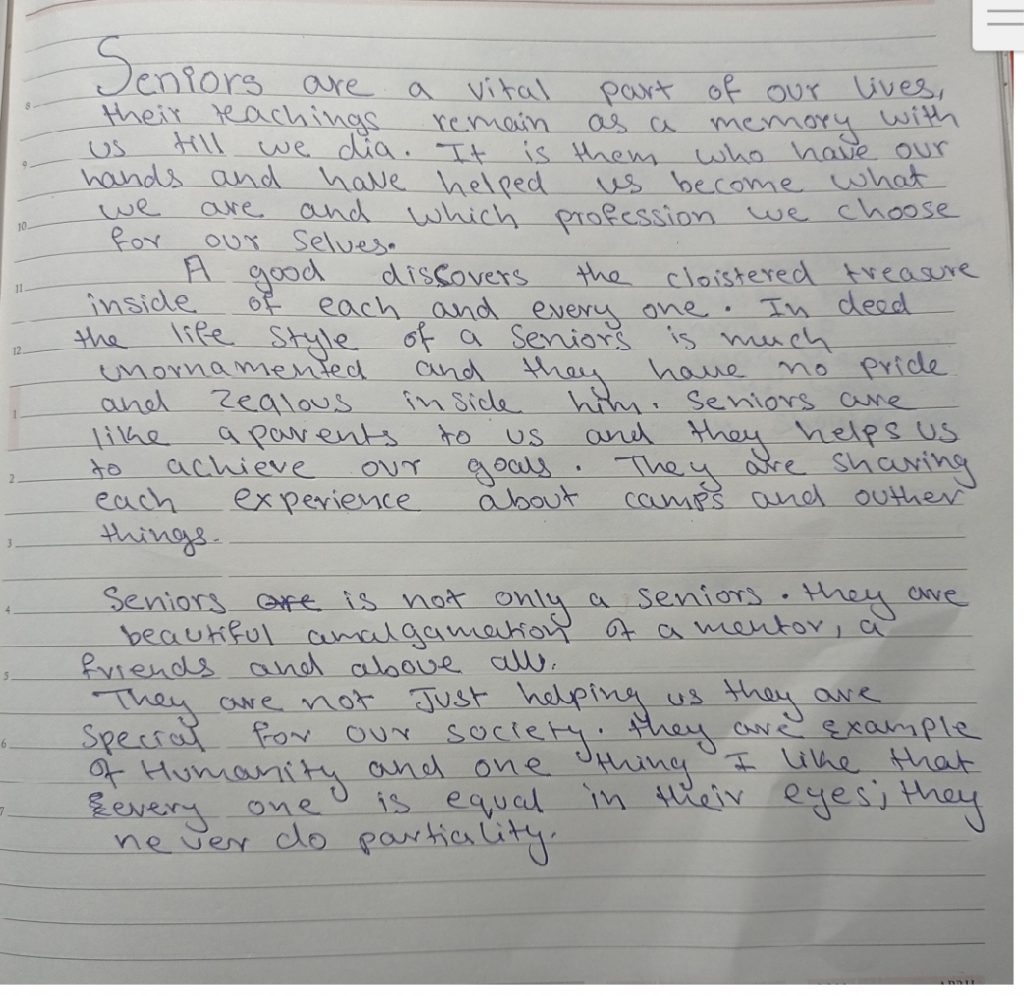 Seniors are a vital part of our lives,
their teachings remain as a memory with
us till we dia. It is them who have our
hands and have helped us become what
we are and which profession we choose
for our selves.
A good discovers the cloistered treasure
inside of each and every one. In deed
the life style of a seniors is much
unornamented and they have no pride
and zealous inside him. Seniors are
like a parents to us and they helps us
to achieve our goals. They are sharing
each experience about camps and outher
things.
Seniors are is not only a seniors. they are
beautiful amalgamation of a mentor, a
friends and above all.
They are not Just helping us they are
special for our society. they are Example
of Humanity and one thing I like that
every one is equal in their eyes; they
never do partiality.
8
9
10
11
12
1
2
3
4
5
6
7